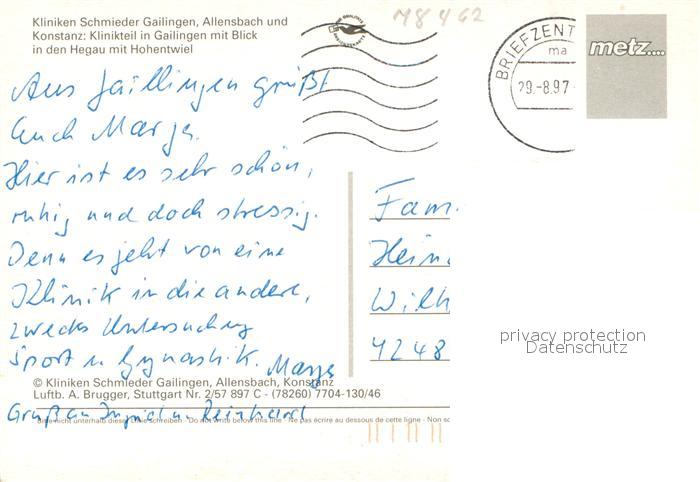 Kliniken Schmieder Gailingen, Allensbach und
Konstanz: Klinikteil in Gailingen mit Blick
in den Hegau mit Hohentwiel
78462
BRIEFZENT
ma
29.-8.97
metz....
Aus Gaillingen grüßt
Euch Marga.
Hier ist es sehr schön,
ruhig und doch stressig.
Denn es geht von eine
Klinik in die andere,
zwecks Untersuchung
Sport u Gynastik. Marga
Fam.
Hein
Wilh
4248
privacy protection
Datenschutz
© Kliniken Schmieder Gailingen, Allensbach, Konstanz
Luftb. A. Brugger, Stuttgart Nr. 2/57 897 C - (78260) 7704-130/46
Gruß an Ingrid un Reinhard
Bitte nicht unterhalb dieser Linie schreiben · Do not write below this line · Ne pas écrire au dessous de cette ligne · Non sc